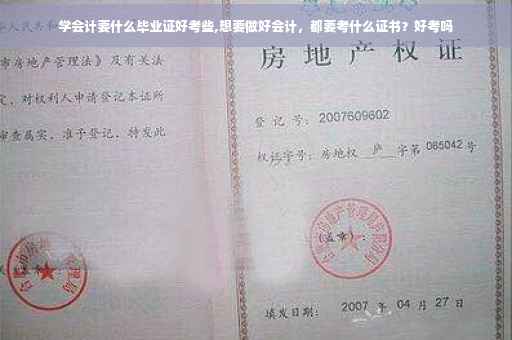 学会计要什么毕业证好考些,想要做好会计，都要考什么证书？好考吗
华人民共和国
市房地产管理法》及有关法
定，对权利人申请登记本证所
审查属实，准予登记，特发此
房地产权证
登 记 号：2007609602
权证字号：房地权 庐 字第 085042 号
(盖章)：
填发日期： 2007 年 04 月 27 日